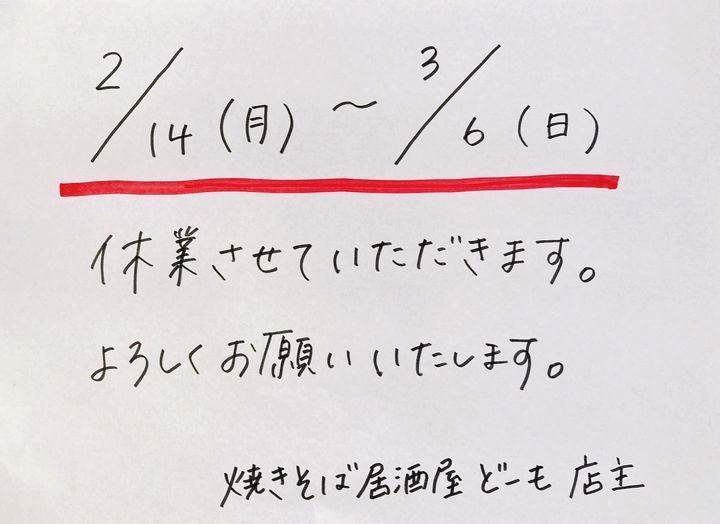 2/14(月)～3/6(日)
休業させていただきます。
よろしくお願いいたします。
焼きそば居酒屋 どーも 店主